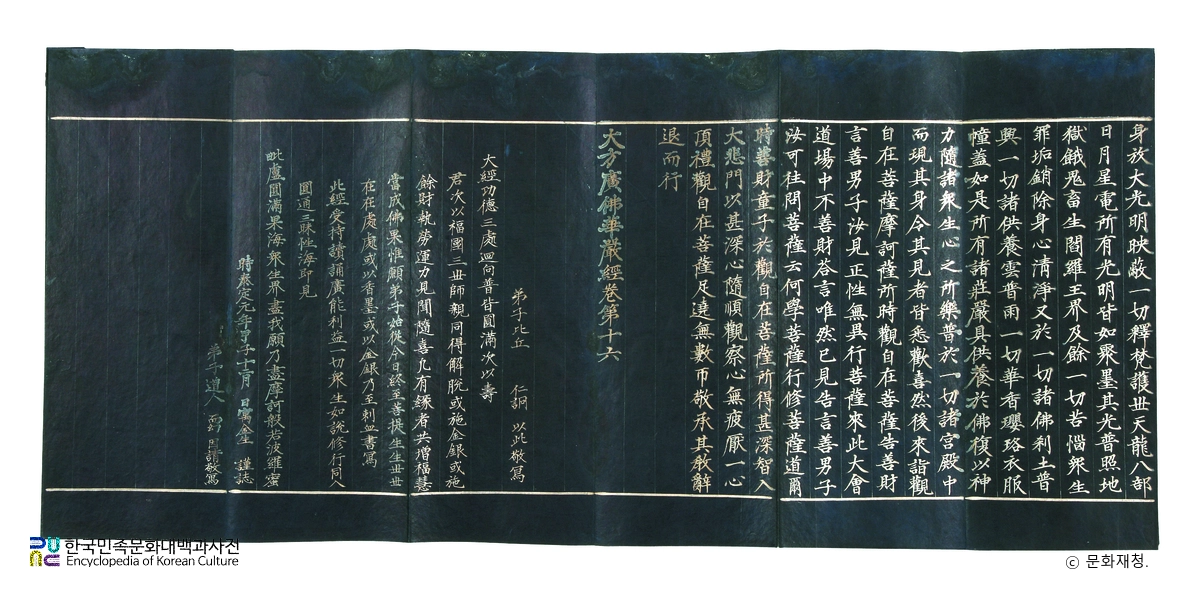 身放大光明映蔽一切釋梵護世天龍八部
日月星電所有光明皆如聚墨其光普照地
獄餓鬼畜生閻羅王界及餘一切苦惱衆生
罪垢銷除身心淸淨又於一切諸佛刹土普
興一切諸供養雲普雨一切華香瓔珞衣服
幢蓋如是所有諸莊嚴具供養於佛復以神
力隨諸衆生心之所樂普於一切諸宮殿中
而現其身令其見者皆悉歡喜然後來詣觀
自在菩薩摩訶薩所時觀自在菩薩告善財
言善男子汝見正性無異行菩薩來此大會
道場中不善財答言唯然已見告言善男子
汝可往問菩薩云何學菩薩行修菩薩道爾
時善財童子於觀自在菩薩所得甚深智入
大悲門以甚深心隨順觀察心無疲厭一心
頂禮觀自在菩薩足遶無數帀敬承其敎辭
退而行
大方廣佛華嚴經卷第十六
弟子比丘 仁詗 以此敬寫
大經功德三處迴向普皆圓滿次以壽
君次以福國三世師親同得解脫或施金銀或施
餘財敖勞運力見聞隨喜凡有緣者共增福慧
當成佛果惟願弟子始從今日終至菩提生生世世
在在處處或以香墨或以金銀乃至刺血書寫
此經受持讀誦廣能利益一切衆生如說修行同入
圓通三昧性海卽見
毗盧圓滿果海衆生界盡我願乃盡摩訶般若波羅蜜
時泰定元年甲子十一月 日寫金 謹誌
弟子道人 敬寫
한국민족문화대백과사전
Encyclopedia of Korean Culture
© 문화재청.